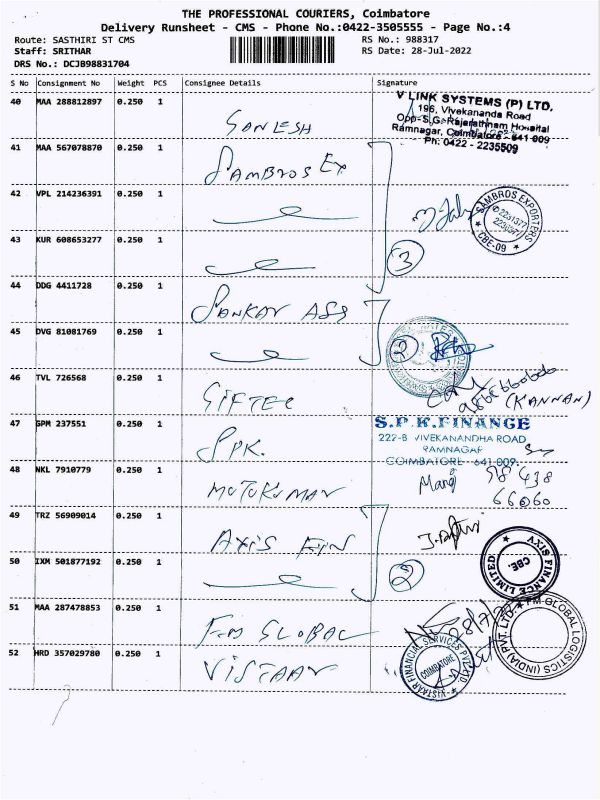 THE PROFESSIONAL COURIERS, Coimbatore
Delivery Runsheet - CMS - Phone No.:0422-3505555 - Page No.:4
Route: SASTHIRI ST CMS
RS No.: 988317
Staff: SRITHAR
RS Date: 28-Jul-2022
DRS No.: DCJB98831704
S No Consignment No Weight PCS Consignee Details Signature
40 MAA 288812897 0.250 1
V LINK SYSTEMS (P) LTD.
196, Vivekananda Road
Opp-S.G. Rajarathnam Hospital
Ramnagar, Coimbatore - 641 009
Ph: 0422 - 2235509
41 MAA 567078870 0.250 1 SAMBROS Ex
42 VPL 214236391 0.250 1
SAMBROS EXPORTERS
CBE-09
43 KUR 608653277 0.250 1
3
44 DDG 4411728 0.250 1 SANKAR ASS
45 DVG 81081769 0.250 1
2
46 TVL 726568 0.250 1 GIFTEC
(KANNAN)
47 GPM 237551 0.250 1 SPK.
S.P.K.FINANCE
222-B VIVEKANANDHA ROAD
RAMNAGAR
COIMBATORE - 641 009.
48 NKL 7910779 0.250 1 MUTUKUMAR
98 438
66060
49 TRZ 56909014 0.250 1 AXIS FIN
50 IXM 501877192 0.250 1
2
AXIS FINANCE LIMITED
CBE.
51 MAA 287478853 0.250 1 FM GLOBAL
FM GLOBAL LOGISTICS (INDIA) PVT. LTD.
52 HRD 357029780 0.250 1 VISTAAR
VISTAAR FINANCIAL SERVICES PVT LTD.
COIMBATORE